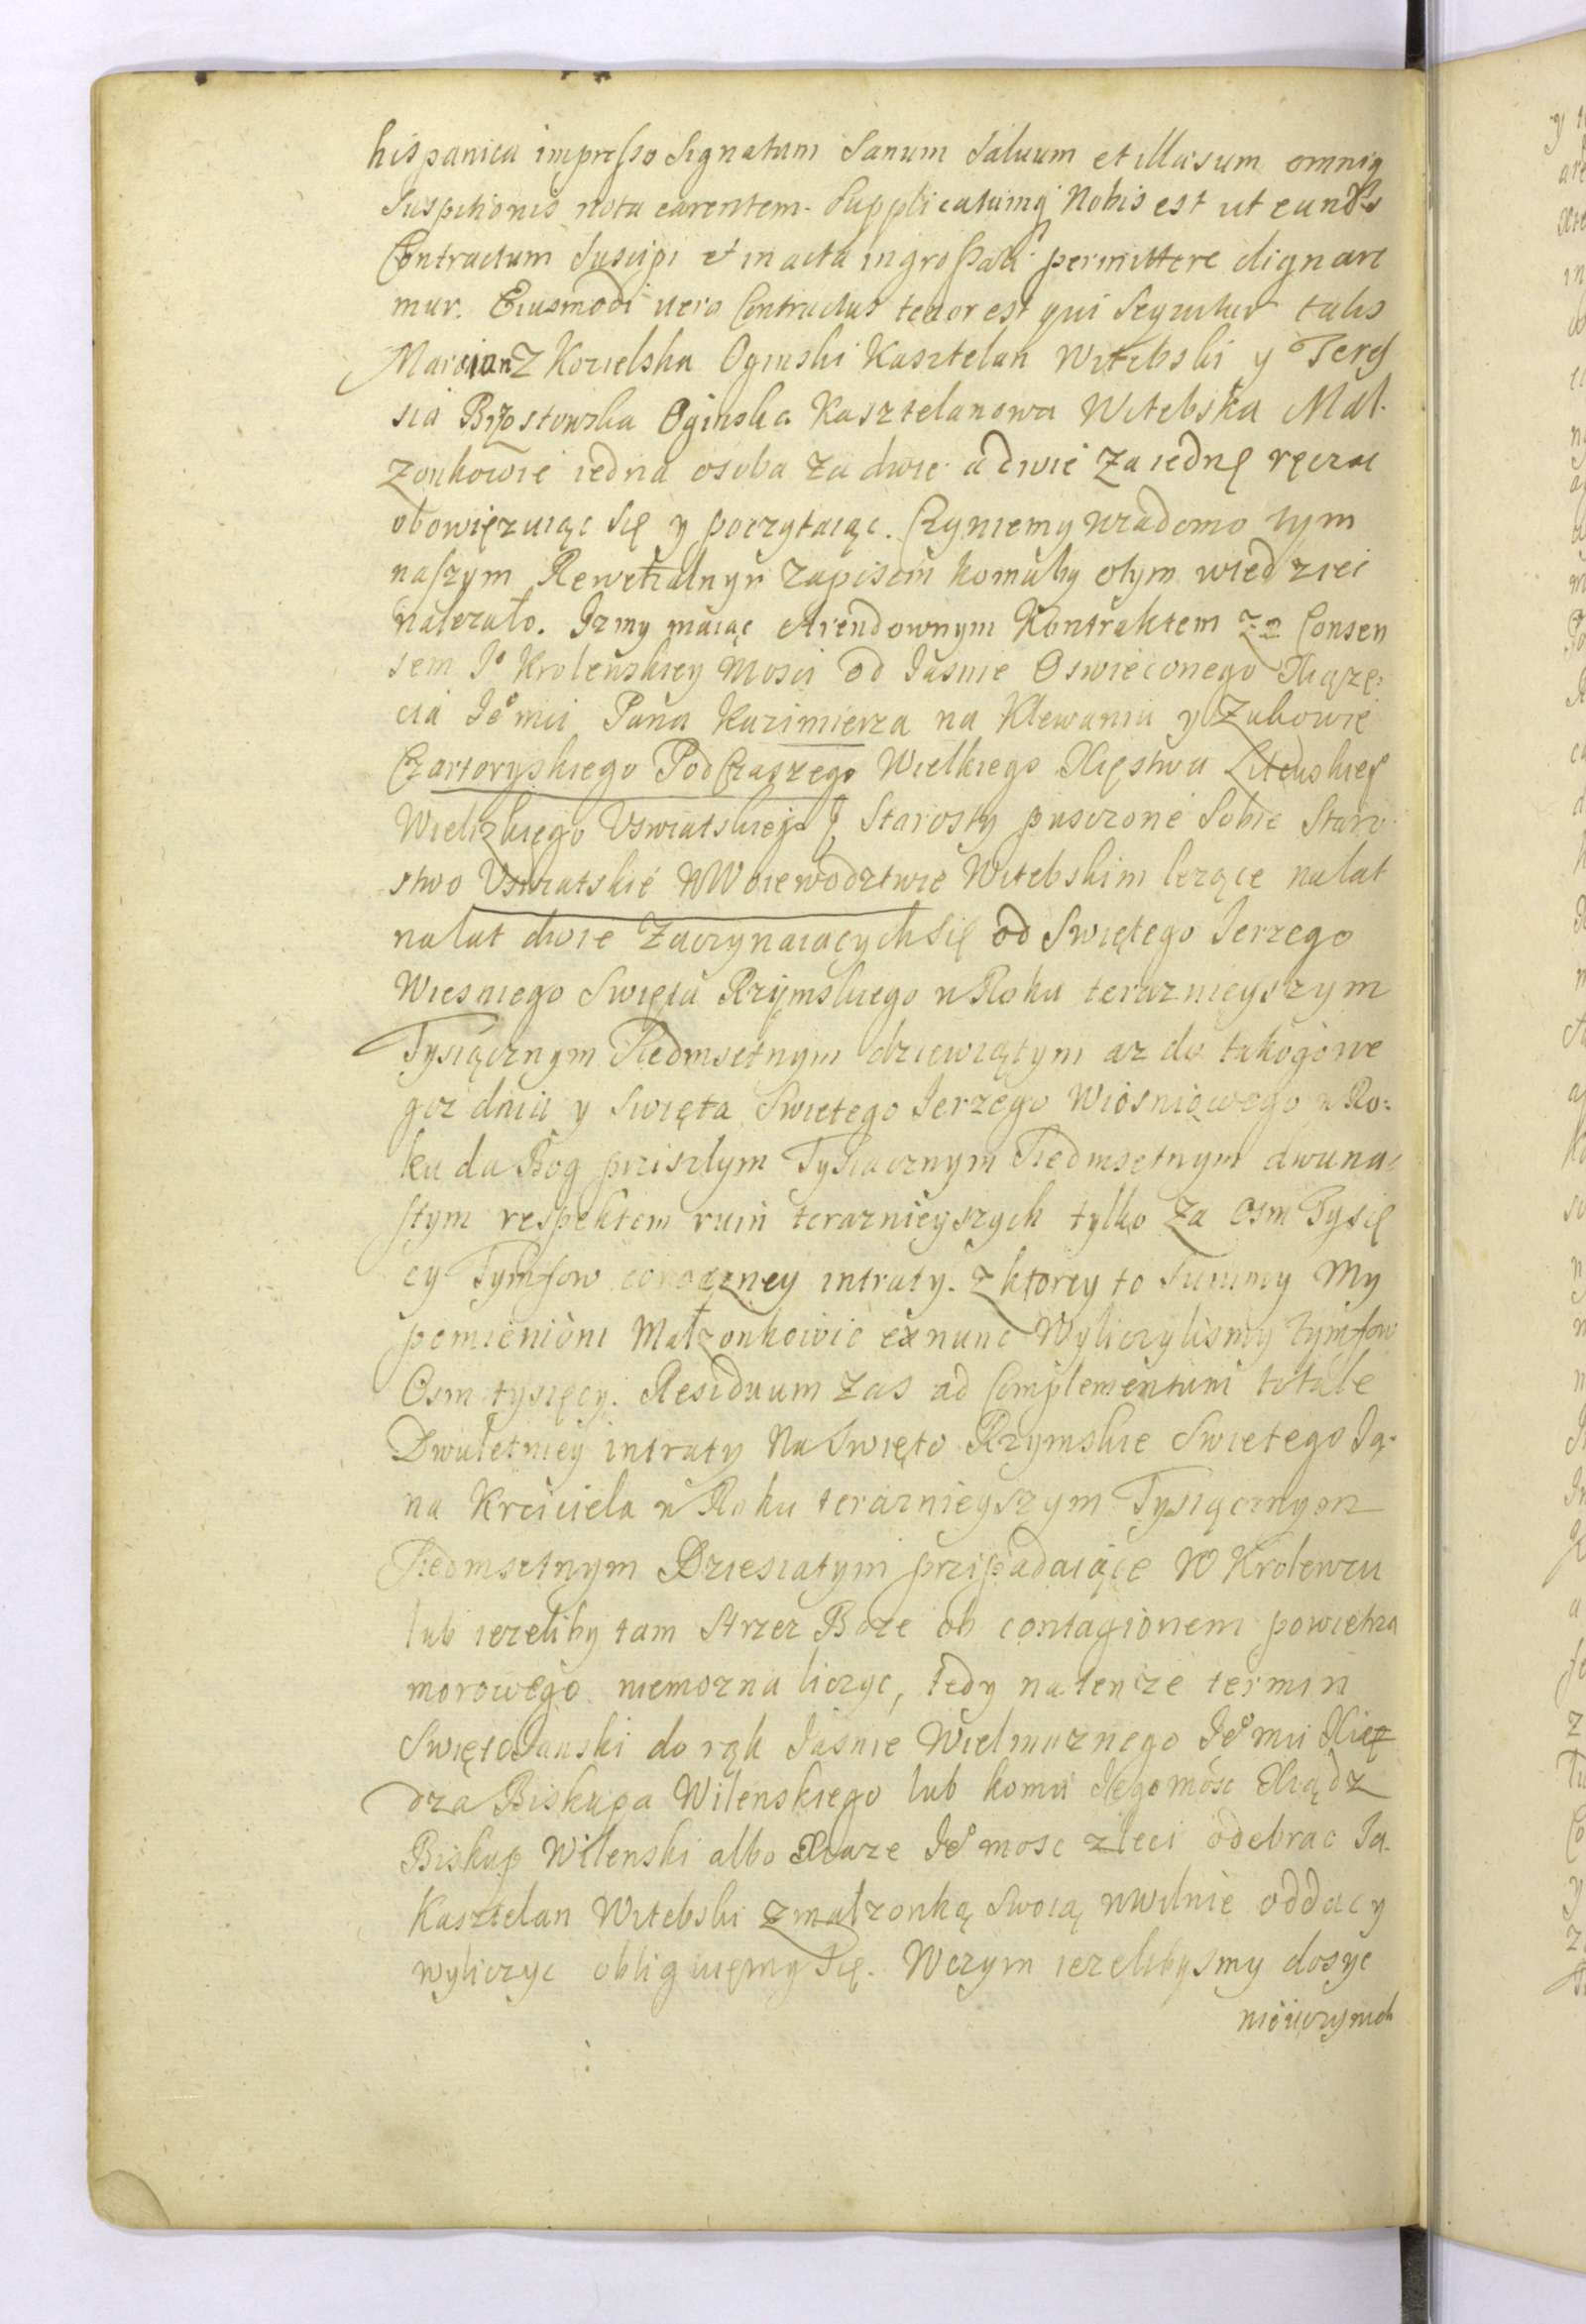 hispanica impresso Signatum Sanum Saluum et illæsum omniq
Suspitionis nota carentem. Supplicatumq Nobis est ut eundē
Contractum Suscipi et in acta ingrossari permittere dignare
mur. Eiusmodi uero Contractus tenor est qui Sequitur talis
Marcian Z Kozielska Oginski Kasztelan Witebski y Tere
sia Brzostowska Oginska Kasztelanowa Witebska Mal.
zonkowie iedna osoba za dwie a dwie za iednę ręcząc
obowięzuiąc się y poczytaiąc. Czyniemy wiadomo tym
naszym Rewersalnym Zapisem komuby otym wiedziec
nalezało. Izmy maiąc Arendownym Kontraktem za Consen
sem Jº Krolewskiey Mosci od Jasnie Oswieconego Xiązę,
cia Jeº mci Pana Kazimierza na Klewaniu y Zukowie
Czartoryskiego PodCzaszego Wielkiego Xięstwa Litewskieº
Wieliskiego Uswiatskiego Starosty puszczone Sobie Staro
stwo Uswiatskie W Woiewodztwie Witebskim lezące nalat
nalat dwie Zaczynaiacych się od Swiętego Jerzego
Wiesniego Swięta Rzymskiego w Roku teraznieyszym
Tysiącznym Siedmsetnym dziewiątym az do takogowe
goz dnia y Swięta Swietego Jerzego Wiosniowego w Ro:
ku da Bog przisztym Tysiacznym Siedmsetnym dwuna:
stym respektem ruin terazniejszych tylko za Osm Tysię
cy Tymfow coroczney intraty. z ktorey to Summy My
pomienieni Małzonkowie ex nunc Wyliczylismy tymfow
Osm tysięcy. Residuum zas ad Complementum totale
Dwuletniey intraty Na Swięto Rzymskie Swietego Ja.
na Krciciela w Roku terazniejszym Tysiącznym
Siedmsetnym Dziesiatym przipadaiące W Krolewcu
lub iezeliby tam Strzez Boze ob contagionem powietrza
morowego niemozna liczyc, tedy natenze termin
SwiętoJanski do rąk Jasnie Wielmoznego Jeº mci Xię
dza Biskupa Wilenskiego lub komu Jegomosc Xiądz
Biskup Wilenski albo Xiaze Jeº mosc zleci odebrac Ja.
Kasztelan Witebski z małzonką Swoią wWilnie oddac y
wyliczyc obliguięmy Się. Wczym iezelibysmy dosyc
nieuczynieli